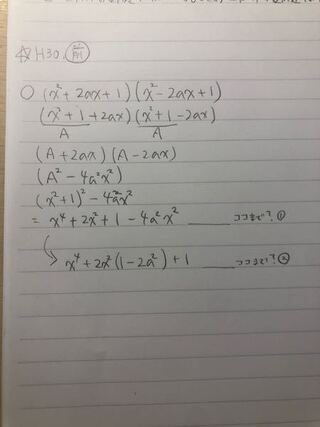 ☆H30.
○ (x²+2ax+1)(x²-2ax+1)
(x²+1+2ax)(x²+1-2ax)
A A
(A+2ax)(A-2ax)
(A²-4a²x²)
(x²+1)²-4a²x²
= x⁴+2x²+1-4a²x² ココまで?①
x⁴+2x²(1-2a²)+1 ココまで?②